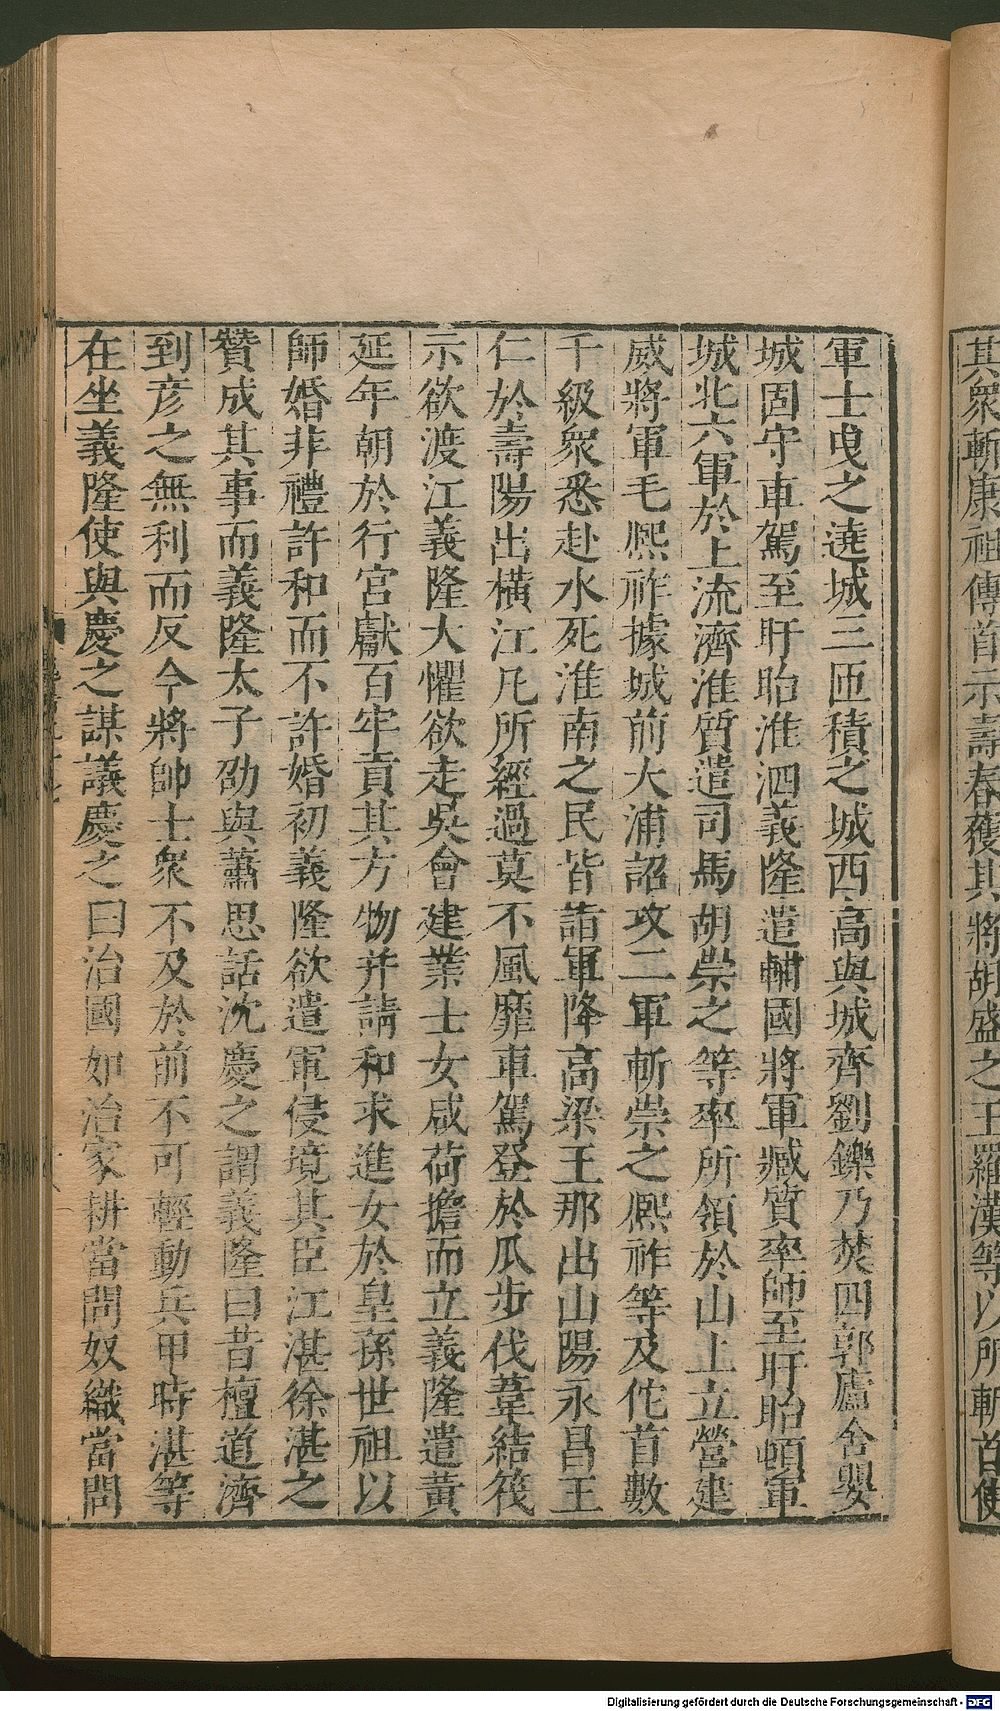 其衆斬康祖傳首示壽春獲其將胡盛之王羅漢等以所斬首使
軍士曳之遶城三匝積之城西高與城齊劉鑠乃焚四郭廬舍嬰
城固守車駕至盱眙淮泗義隆遣輔國將軍臧質率師至盱眙頓軍
城北六軍於上流濟淮質遣司馬胡崇之等率所領於山上立營建
威將軍毛熙祚據城前大浦詔攻二軍斬崇之熙祚等及佗首數
千級衆悉赴水死淮南之民皆詣軍降高梁王那出山陽永昌王
仁於壽陽出橫江凡所經過莫不風靡車駕登於瓜步伐葦結筏
示欲渡江義隆大懼欲走吳會建業士女咸荷擔而立義隆遣黃
延年朝於行宮獻百牢貢其方物并請和求進女於皇孫世祖以
師婚非禮許和而不許婚初義隆欲遣軍侵境其臣江湛徐湛之
贊成其事而義隆太子劭與蕭思話沈慶之謂義隆曰昔檀道濟
到彥之無利而反今將帥士衆不及於前不可輕動兵甲時湛等
在坐義隆使與慶之謀議慶之曰治國如治家耕當問奴織當問
Digitalisierung gefördert durch die Deutsche Forschungsgemeinschaft - DFG